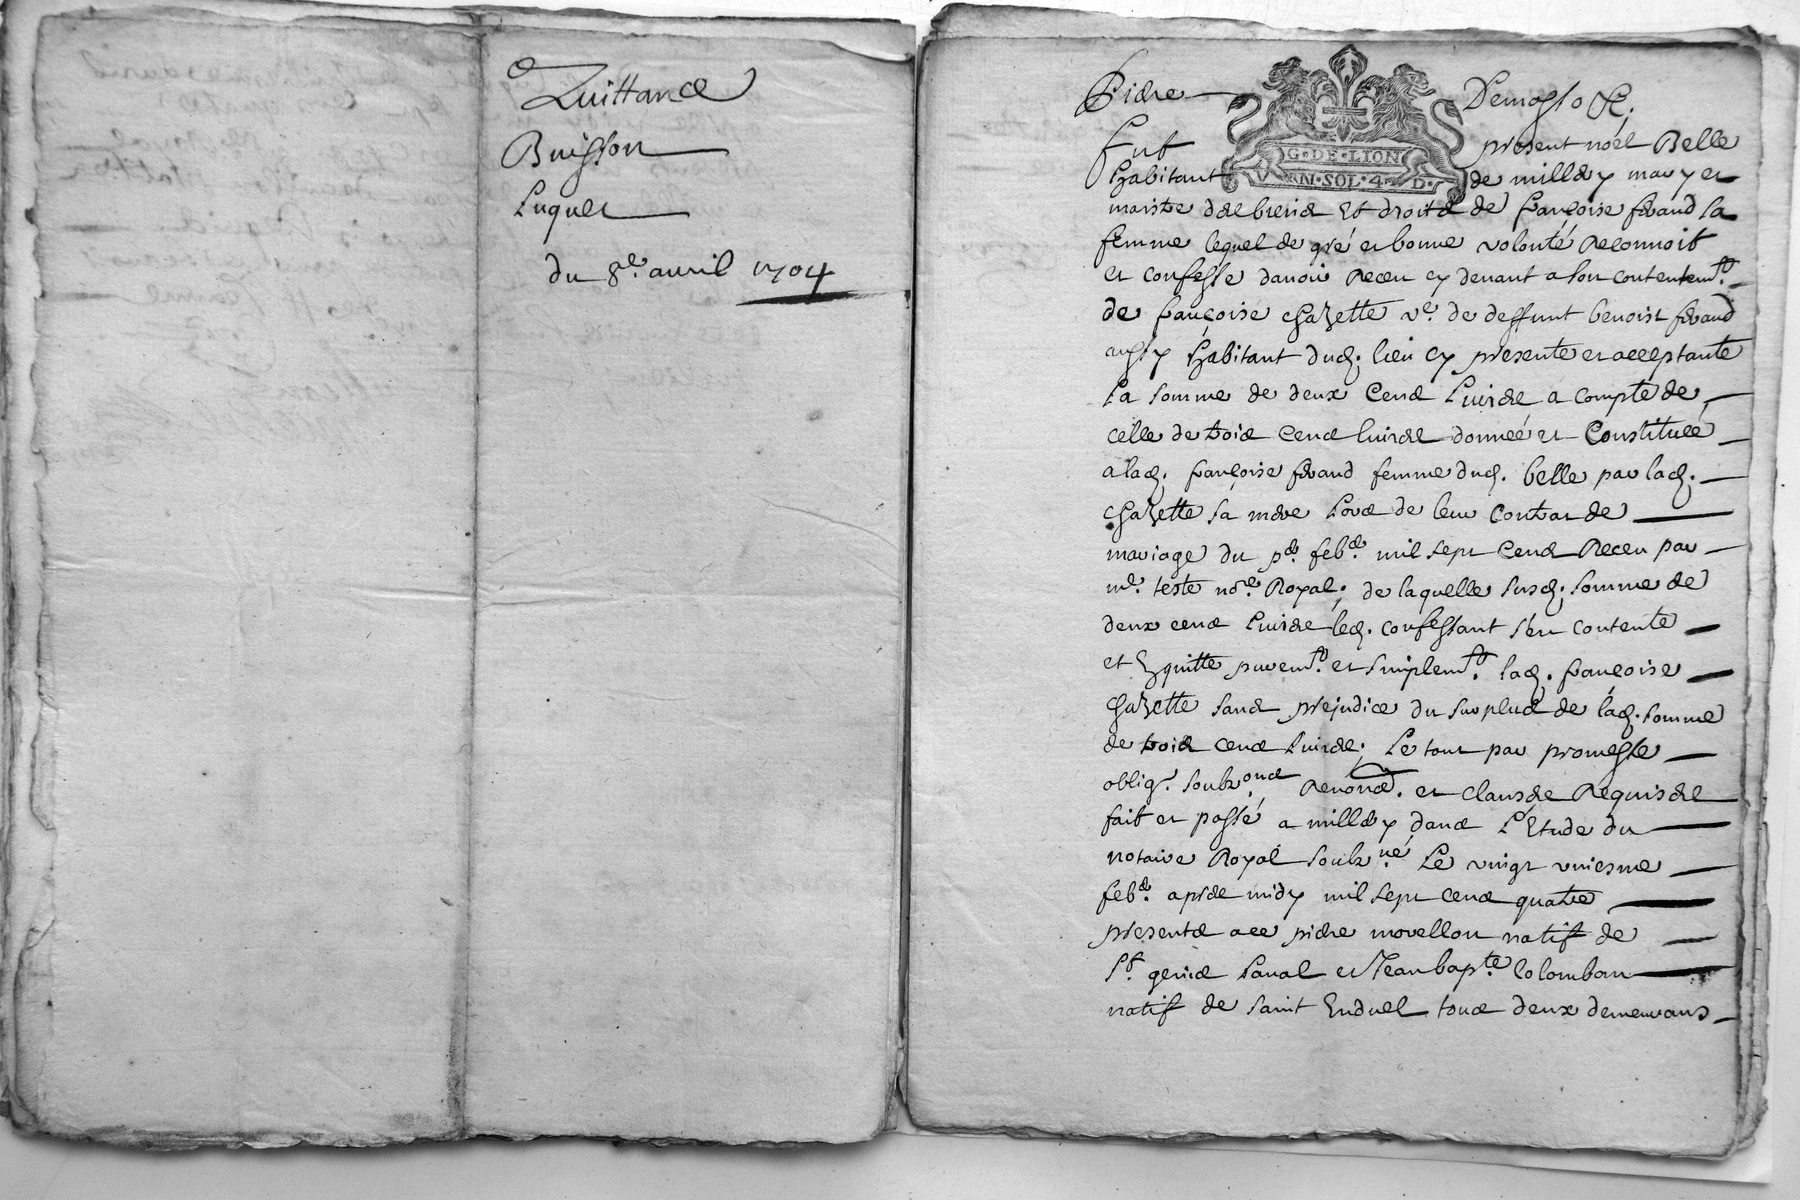 Quittance
Buisson
Luquet
du 8e. avril 1704
Piere
G·DE·LION
VN·SOL·4·D·
Fut present noël Belle
habitant de millery mary et
maistre des biens et droits de françoise ferand sa
femme lequel de gré et bonne volonté Reconnoit
et confesse davoir Receu cy devant a son contentemt.
de françoise chazette ve. de deffunt benoist ferand
aussy habitant dud. lieu cy presente et acceptante
La somme de deux Cens Livres a compte de
celle de trois Cens livres donneé et Constitueé
a lad. françoise ferand femme dud. belle par lad.
chazette sa mere Lors de leur Contrat de
mariage du pr. febr. mil sept Cens Receu par
me. teste nore. Royal, de laquelle susd. somme de
deux cens Livres led. confessant s'en contente
et Equitte puremt. et simplemt. lad. françoise
chazette sans prejudice du surplus de lad. somme
de trois cens Livres. Le tout par promesse
oblig. soubz.ons Renons. et clauses Requises
fait et passé a millery dans L'Etude du
notaire Royal soubz.né Le vingt uniesme
febr. apres midy mil sept cens quatre
presents piere morellon natif de
St. genis Laval et Jean bapte. Colomban
natif de saint tous deux demeurans